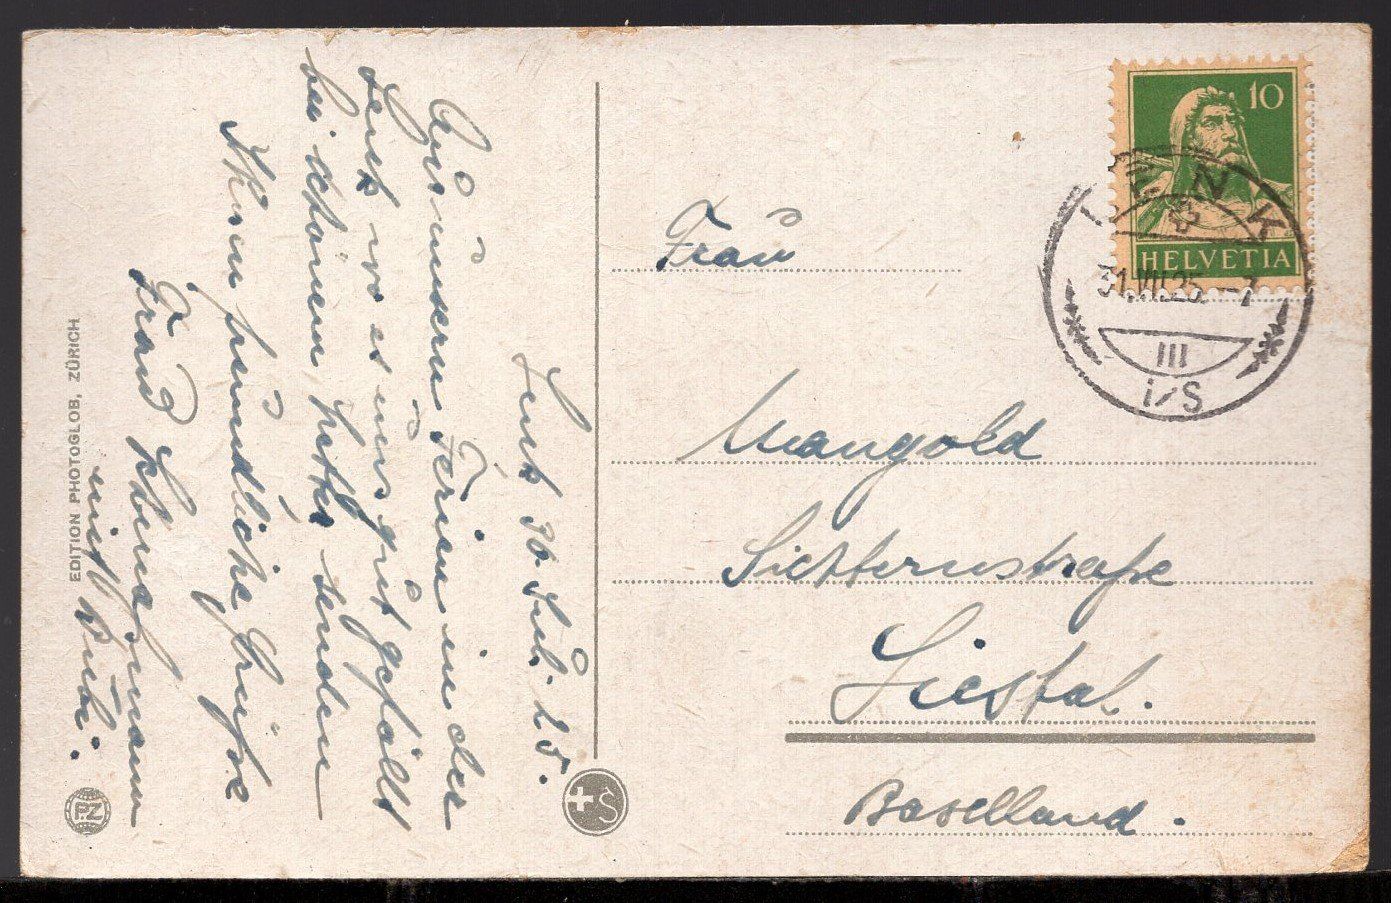 Lenk 30 Jul. 25.
Aus unsern Ferien in der
Lenk wo es uns gut gefällt
bei schönem Wetter senden
Ihnen freundliche Grüsse
Frau
mit Bubi.
EDITION PHOTOGLOB, ZÜRICH
P.Z
S
10
HELVETIA
LENK
31.VII.25.-7
III
i/S
Frau
Mangold
Sichternstraße
Liestal.
Baselland.